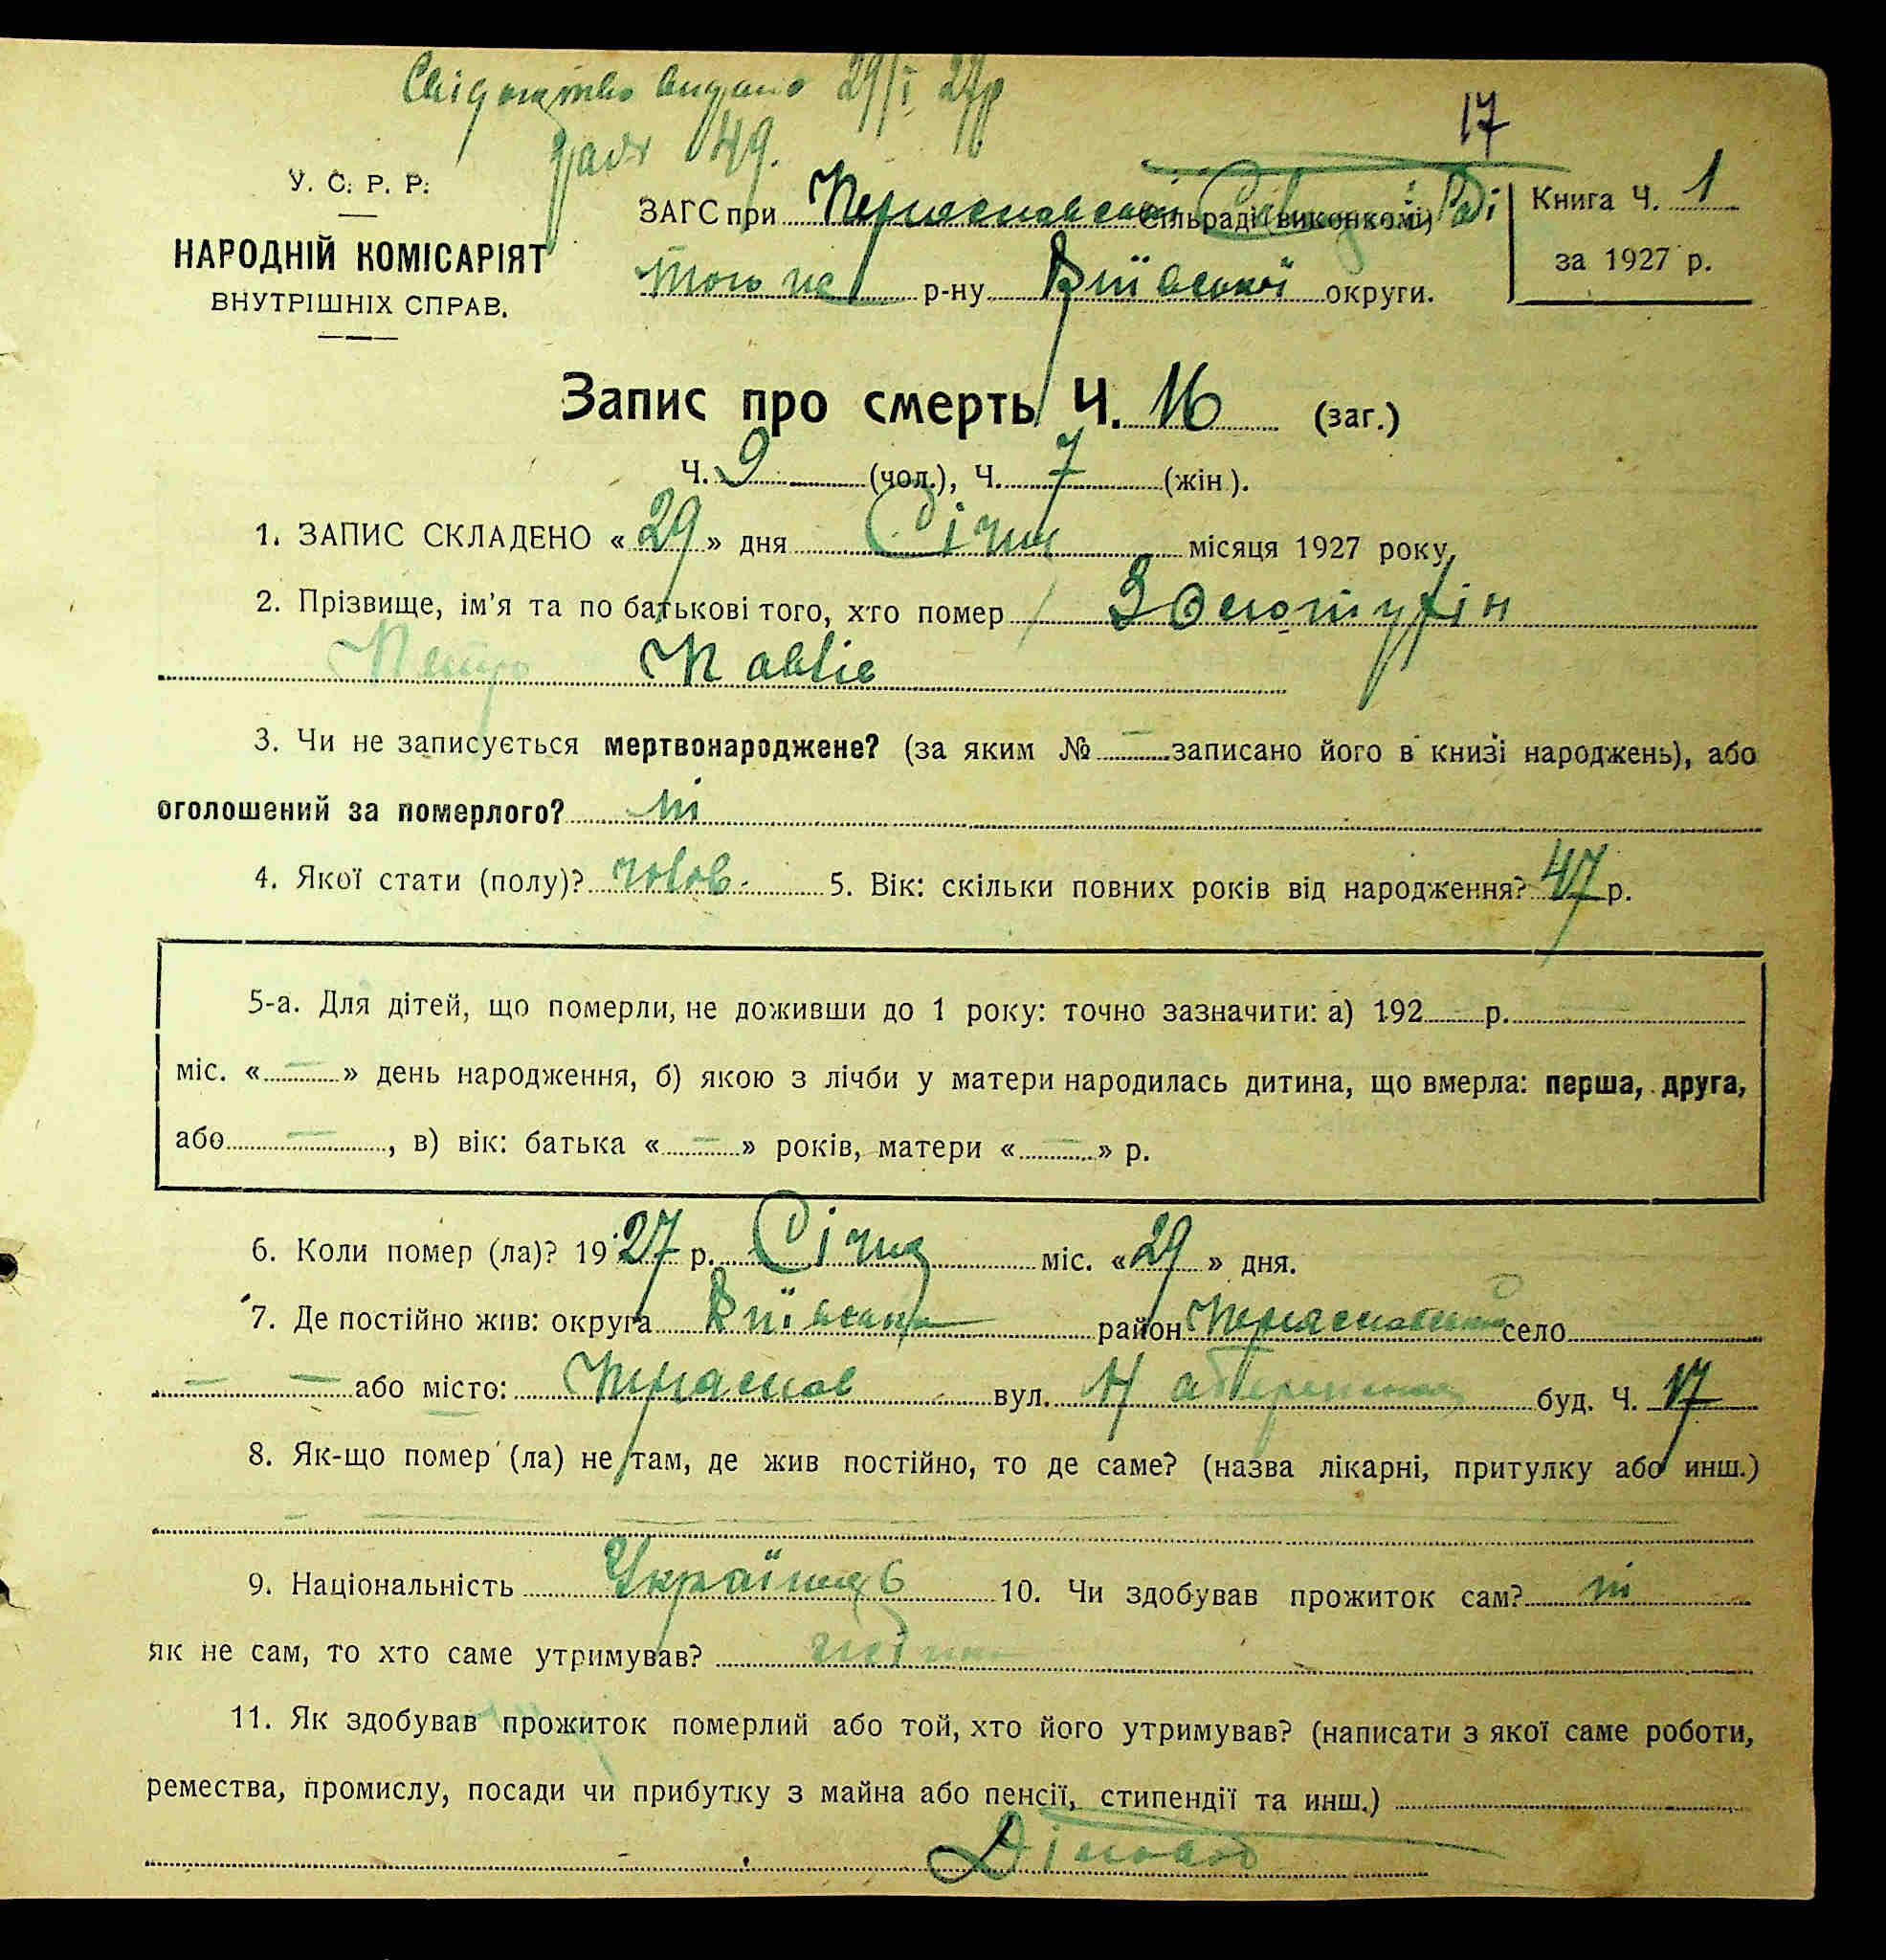 Свідоцтво видано 29/I 27р
49.
17
У. С. Р. Р.
НАРОДНІЙ КОМІСАРІЯТ
ВНУТРІШНІХ СПРАВ.
ЗАГС при Переяславській Сільраді (виконкомі) Раді
того ж р-ну Київської округи.
Книга Ч. 1
за 1927 р.
Запис про смерть Ч. 16 (заг.)
Ч. 9 (чол.), Ч. 7 (жін).
1. ЗАПИС СКЛАДЕНО «29» дня Січня місяця 1927 року
2. Прізвище, ім'я та по батькові того, хто помер
Петро
3. Чи не записується мертвонароджене? (за яким № — записано його в книзі народжень), або
оголошений за померлого? ні
4. Якої стати (полу)? чолов. 5. Вік: скільки повних років від народження? 47 р.
5-а. Для дітей, що померли, не доживши до 1 року: точно зазначити: а) 192 — р. —
міс. « — » день народження, б) якою з лічби у матери народилась дитина, що вмерла: перша, друга,
або — , в) вік: батька « — » років, матери « — » р.
6. Коли помер (ла)? 1927 р. Січня міс. «29» дня.
7. Де постійно жив: округа Київська район Переяславський село
— — або місто: Переяслав вул. Набережна буд. Ч. 17
8. Як-що помер (ла) не там, де жив постійно, то де саме? (назва лікарні, притулку або инш.)
— — — —
9. Національність Українец 10. Чи здобував прожиток сам? ні
як не сам, то хто саме утримував? жінка
11. Як здобував прожиток померлий або той, хто його утримував? (написати з якої саме роботи,
ремества, промислу, посади чи прибутку з майна або пенсії, стипендії та инш.)